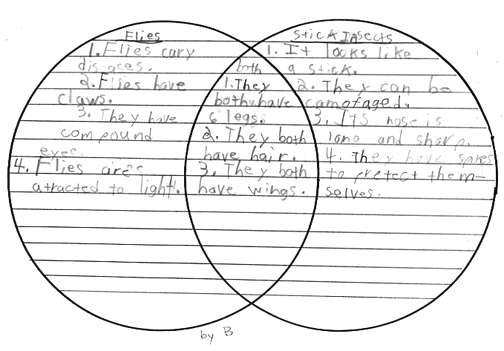 Flies
1. Flies cary
diseases.
2. Flies have
claws.
3. They have
compound
eyes.
4. Flies are
atracted to light.
both
1. They
both have
6 legs.
2. They both
have hair.
3. They both
have wings.
Stick Insects
1. It looks like
a stick.
2. They can be
camofaged.
3. Its nose is
long and sharp.
4. They have spikes
to pretect them-
selves.
by B